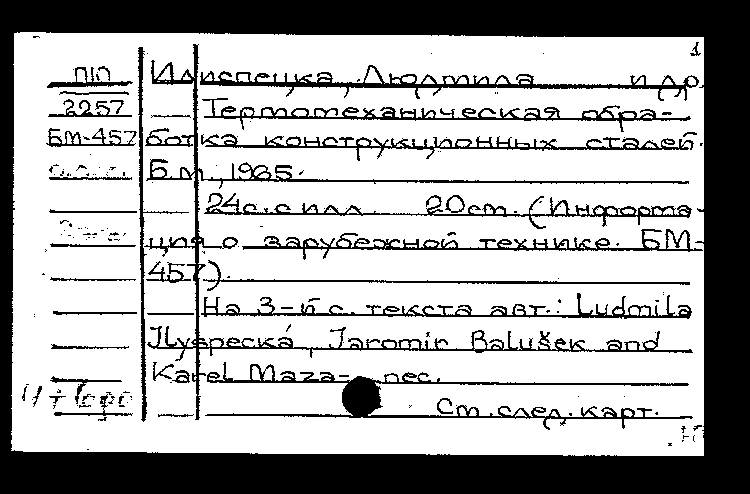 1
ПІП Илиспецка, Людмила и др.
2257 Термотехническая обра-
БМ-457 ботка конструкционных сталей.
Б.м., 1965.
24с. с илл 20см. (Информа-
ция о зарубежной технике. БМ-
457).
На 3-й с. текста авт.: Ludmila
Ilyspecká, Jaromir Balušek and
Karel Maza- nec.
См. след. карт.